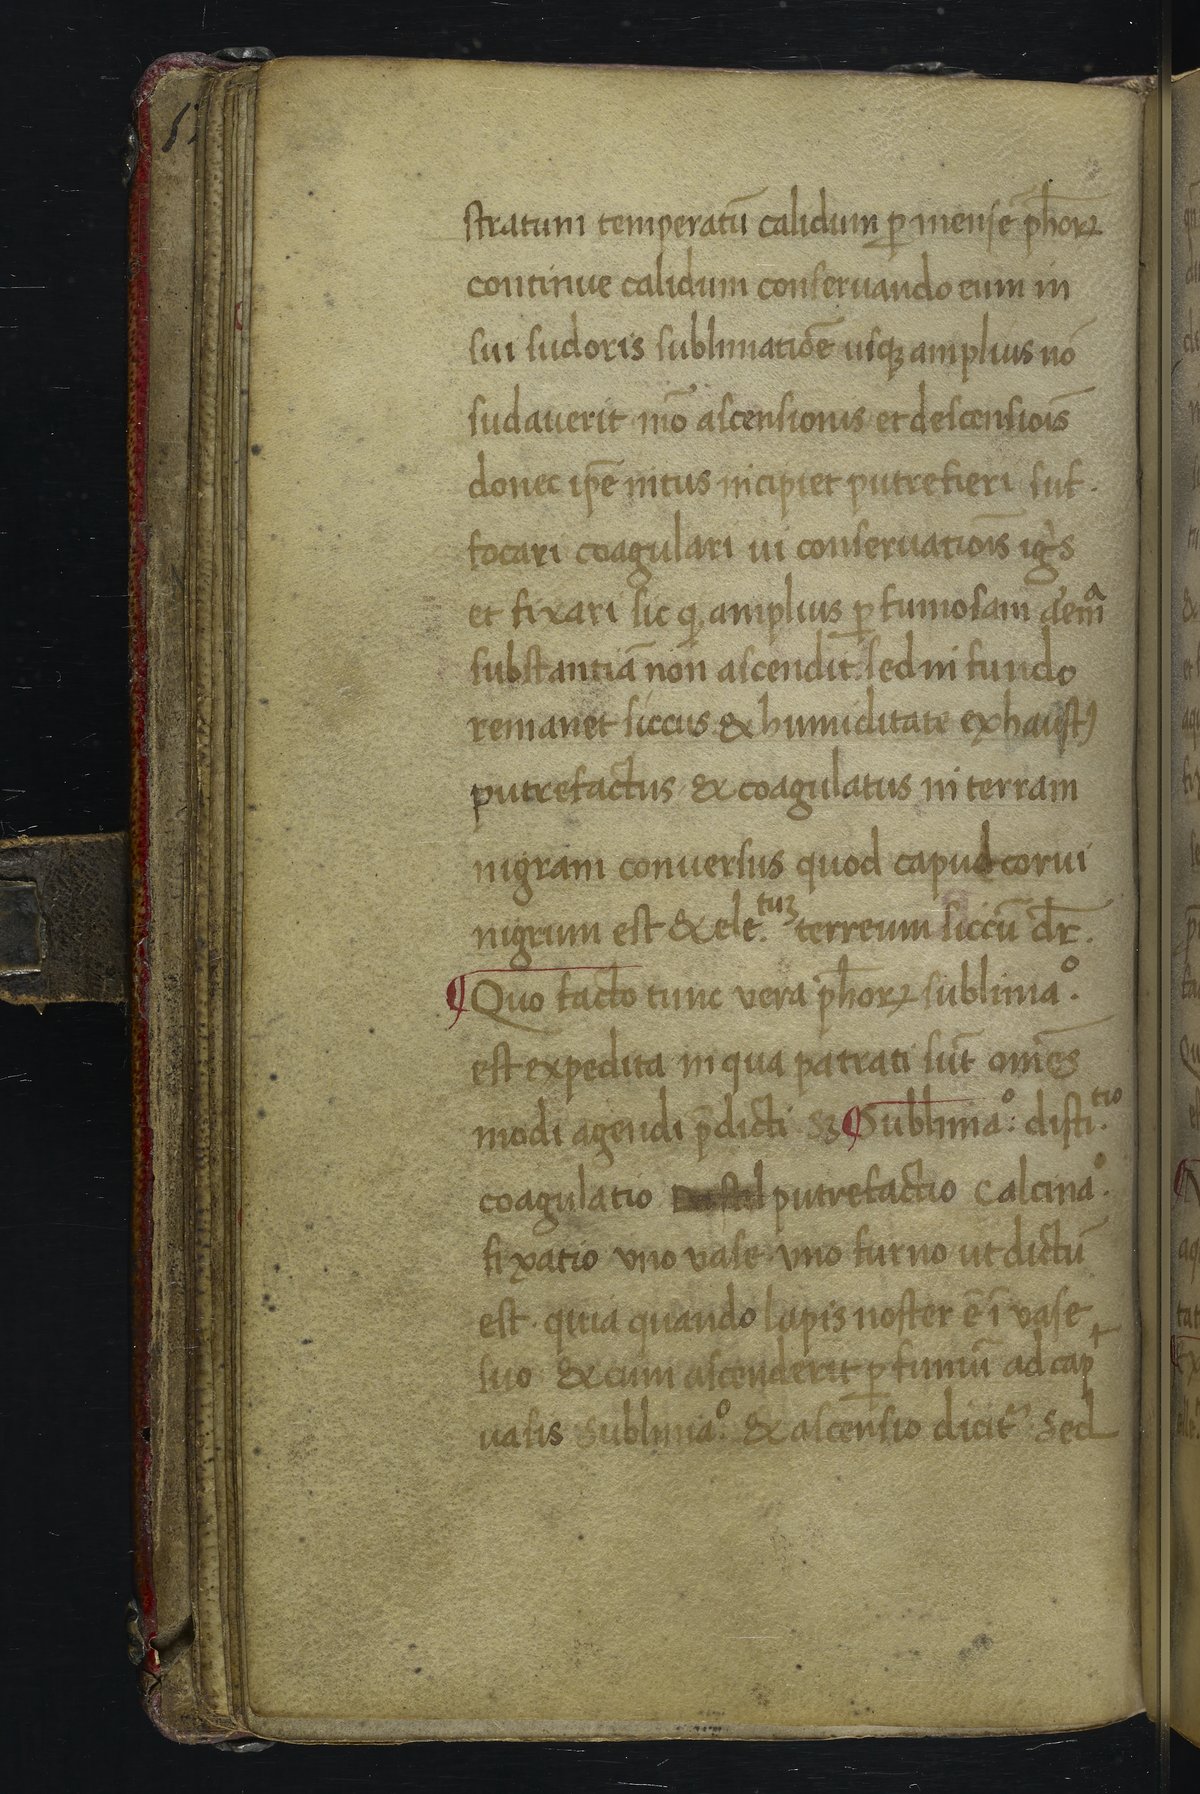 stratum temperatū calidum ꝑ mensē ph̄oꝝ
continue calidum conseruando eum in
sui sudoris sublimatiōē usqꝫ amplius nō
sudauerit mō ascensionis et descensiōis
donec ip̄e intus incipiet putrefieri suf-
focari coagulari ui conseruatiōis ig̃s
et fixari sic ꝙ amplius ꝑ fumosam
substantiā non ascendit sed in fundo
remanet siccus & humiditate exhaustꝰ
putrefactus & coagulatus in terram
nigram conuersus quod capud corui
nigrum est & ele.tuꝫ terreum siccū dr̄.
¶ Quo facto tunc vera ph̄oꝝ sublimaº.
est expedita in qua patrati sūt om̄es
modi agendi p̄dicti Sꝫ ¶ Sublimaº: disti.tio
coagulatio putrefactio Calcinaº.
fixatio vno vase vno furno ut dictū
est. quia quando lapis noster ē ī vase
suo & cum ascenderit ꝑ fumū ad cap
uasis Sublimaº. & ascensio dicit᷑ Sed
12